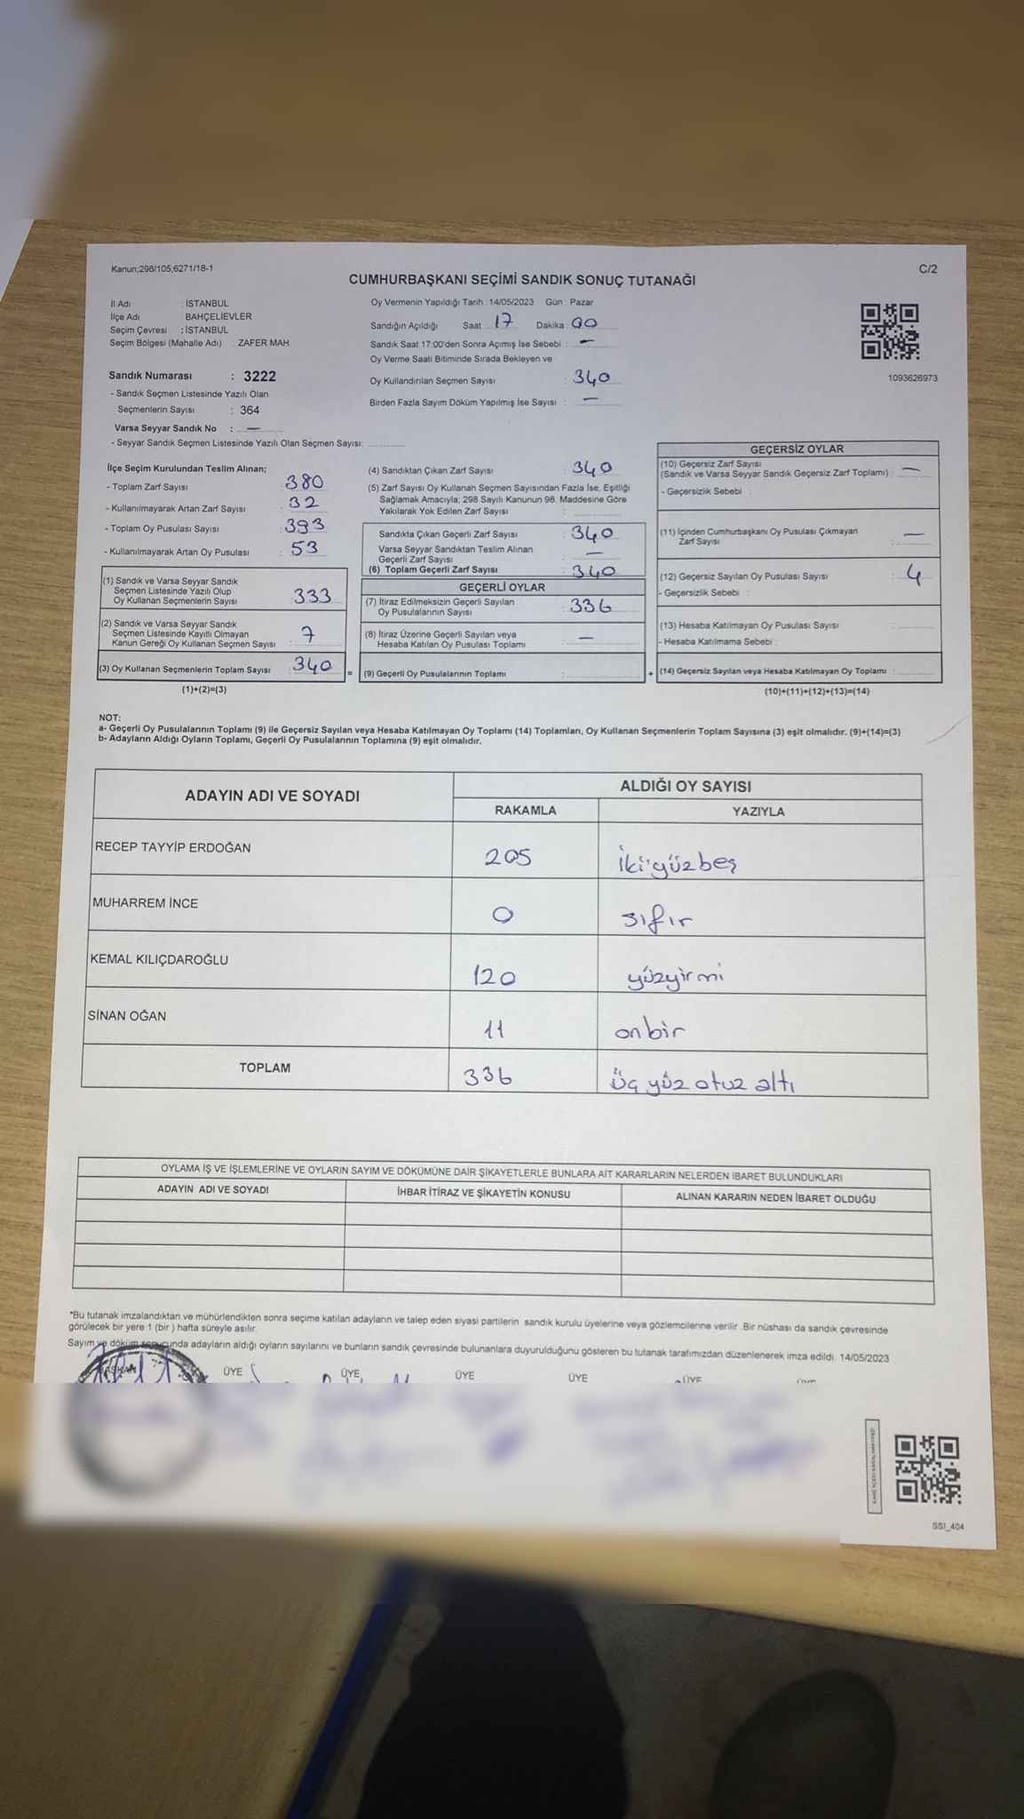 Kanun;298/105;6271/18-1
C/2
CUMHURBAŞKANI SEÇİMİ SANDIK SONUÇ TUTANAĞI
İl Adı : İSTANBUL
İlçe Adı : BAHÇELİEVLER
Seçim Çevresi : İSTANBUL
Seçim Bölgesi (Mahalle Adı) : ZAFER MAH.
Sandık Numarası : 3222
- Sandık Seçmen Listesinde Yazılı Olan
Seçmenlerin Sayısı : 364
Varsa Seyyar Sandık No : —
- Seyyar Sandık Seçmen Listesinde Yazılı Olan Seçmen Sayısı:
Oy Vermenin Yapıldığı Tarih : 14/05/2023 Gün : Pazar
Sandığın Açıldığı Saat 17 Dakika 00
Sandık Saat 17:00'den Sonra Açılmış İse Sebebi : —
Oy Verme Saati Bitiminde Sırada Bekleyen ve
Oy Kullandırılan Seçmen Sayısı : 340
Birden Fazla Sayım Döküm Yapılmış İse Sayısı : —
1093626973
İlçe Seçim Kurulundan Teslim Alınan;
- Toplam Zarf Sayısı 380
- Kullanılmayarak Artan Zarf Sayısı 32
- Toplam Oy Pusulası Sayısı 393
- Kullanılmayarak Artan Oy Pusulası 53
(1) Sandık ve Varsa Seyyar Sandık
Seçmen Listesinde Yazılı Olup
Oy Kullanan Seçmenlerin Sayısı 333
(2) Sandık ve Varsa Seyyar Sandık
Seçmen Listesinde Kayıtlı Olmayan
Kanun Gereği Oy Kullanan Seçmen Sayısı 7
(3) Oy Kullanan Seçmenlerin Toplam Sayısı 340 =
(1)+(2)=(3)
(4) Sandıktan Çıkan Zarf Sayısı : 340
(5) Zarf Sayısı Oy Kullanan Seçmen Sayısından Fazla İse, Eşitliği
Sağlamak Amacıyla; 298 Sayılı Kanunun 98. Maddesine Göre
Yakılarak Yok Edilen Zarf Sayısı :
Sandıkta Çıkan Geçerli Zarf Sayısı : 340
Varsa Seyyar Sandıktan Teslim Alınan
Geçerli Zarf Sayısı : —
(6) Toplam Geçerli Zarf Sayısı : 340
GEÇERLİ OYLAR
(7) İtiraz Edilmeksizin Geçerli Sayılan
Oy Pusulalarının Sayısı : 336
(8) İtiraz Üzerine Geçerli Sayılan veya
Hesaba Katılan Oy Pusulası Toplamı : —
(9) Geçerli Oy Pusulalarının Toplamı : +
GEÇERSİZ OYLAR
(10) Geçersiz Zarf Sayısı
(Sandık ve Varsa Seyyar Sandık Geçersiz Zarf Toplamı) : —
- Geçersizlik Sebebi :
(11) İçinden Cumhurbaşkanı Oy Pusulası Çıkmayan
Zarf Sayısı : —
(12) Geçersiz Sayılan Oy Pusulası Sayısı : 4
- Geçersizlik Sebebi :
(13) Hesaba Katılmayan Oy Pusulası Sayısı :
- Hesaba Katılmama Sebebi :
(14) Geçersiz Sayılan veya Hesaba Katılmayan Oy Toplamı :
(10)+(11)+(12)+(13)=(14)
NOT:
a- Geçerli Oy Pusulalarının Toplamı (9) ile Geçersiz Sayılan veya Hesaba Katılmayan Oy Toplamı (14) Toplamları, Oy Kullanan Seçmenlerin Toplam Sayısına (3) eşit olmalıdır. (9)+(14)=(3)
b- Adayların Aldığı Oyların Toplamı, Geçerli Oy Pusulalarının Toplamına (9) eşit olmalıdır.
ADAYIN ADI VE SOYADI
ALDIĞI OY SAYISI
RAKAMLA YAZIYLA
RECEP TAYYİP ERDOĞAN 205 ikiyüzbeş
MUHARREM İNCE 0 sıfır
KEMAL KILIÇDAROĞLU 120 yüzyirmi
SİNAN OĞAN 11 onbir
TOPLAM 336 üç yüz otuz altı
OYLAMA İŞ VE İŞLEMLERİNE VE OYLARIN SAYIM VE DÖKÜMÜNE DAİR ŞİKAYETLERLE BUNLARA AİT KARARLARIN NELERDEN İBARET BULUNDUKLARI
ADAYIN ADI VE SOYADI İHBAR İTİRAZ VE ŞİKAYETİN KONUSU ALINAN KARARIN NEDEN İBARET OLDUĞU
*Bu tutanak imzalandıktan ve mühürlendikten sonra seçime katılan adayların ve talep eden siyasi partilerin sandık kurulu üyelerine veya gözlemcilerine verilir. Bir nüshası da sandık çevresinde
görülecek bir yere 1 (bir ) hafta süreyle asılır.
Sayım ve döküm sonucunda adayların aldığı oyların sayılarını ve bunların sandık çevresinde bulunanlara duyurulduğunu gösteren bu tutanak tarafımızdan düzenlenerek imza edildi. 14/05/2023
BAŞKAN ÜYE ÜYE ÜYE ÜYE ÜYE
SSI_404